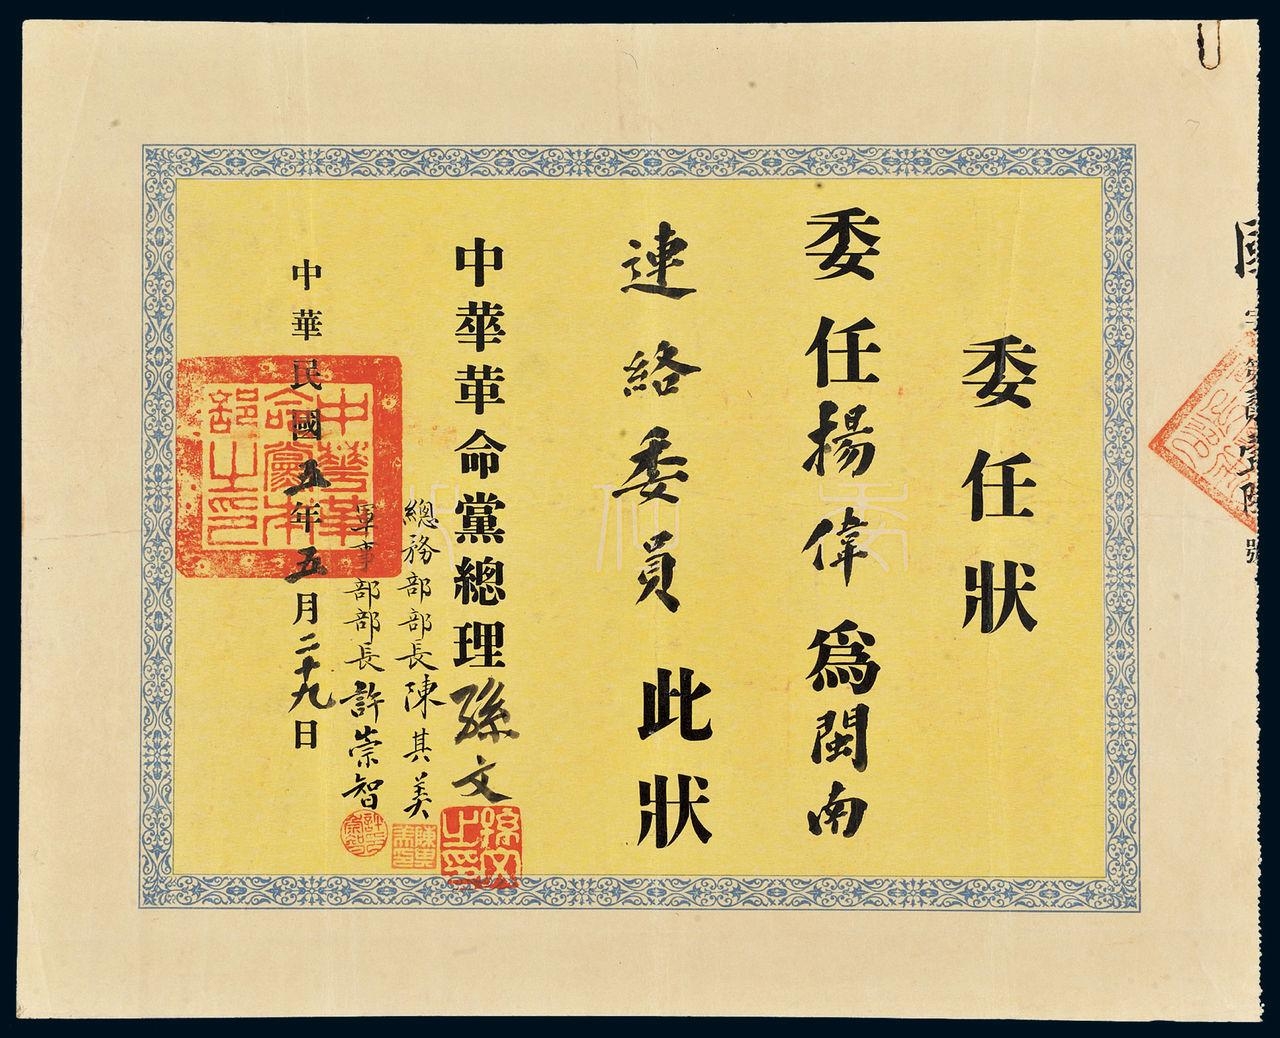 委任狀
委任揚偉爲閩南
連絡委員此狀
中華革命黨總理孫文
孫文之印
總務部部長陳其美
軍事部部長許崇智
中華民國五年五月二十九日
中華革命黨本部之印